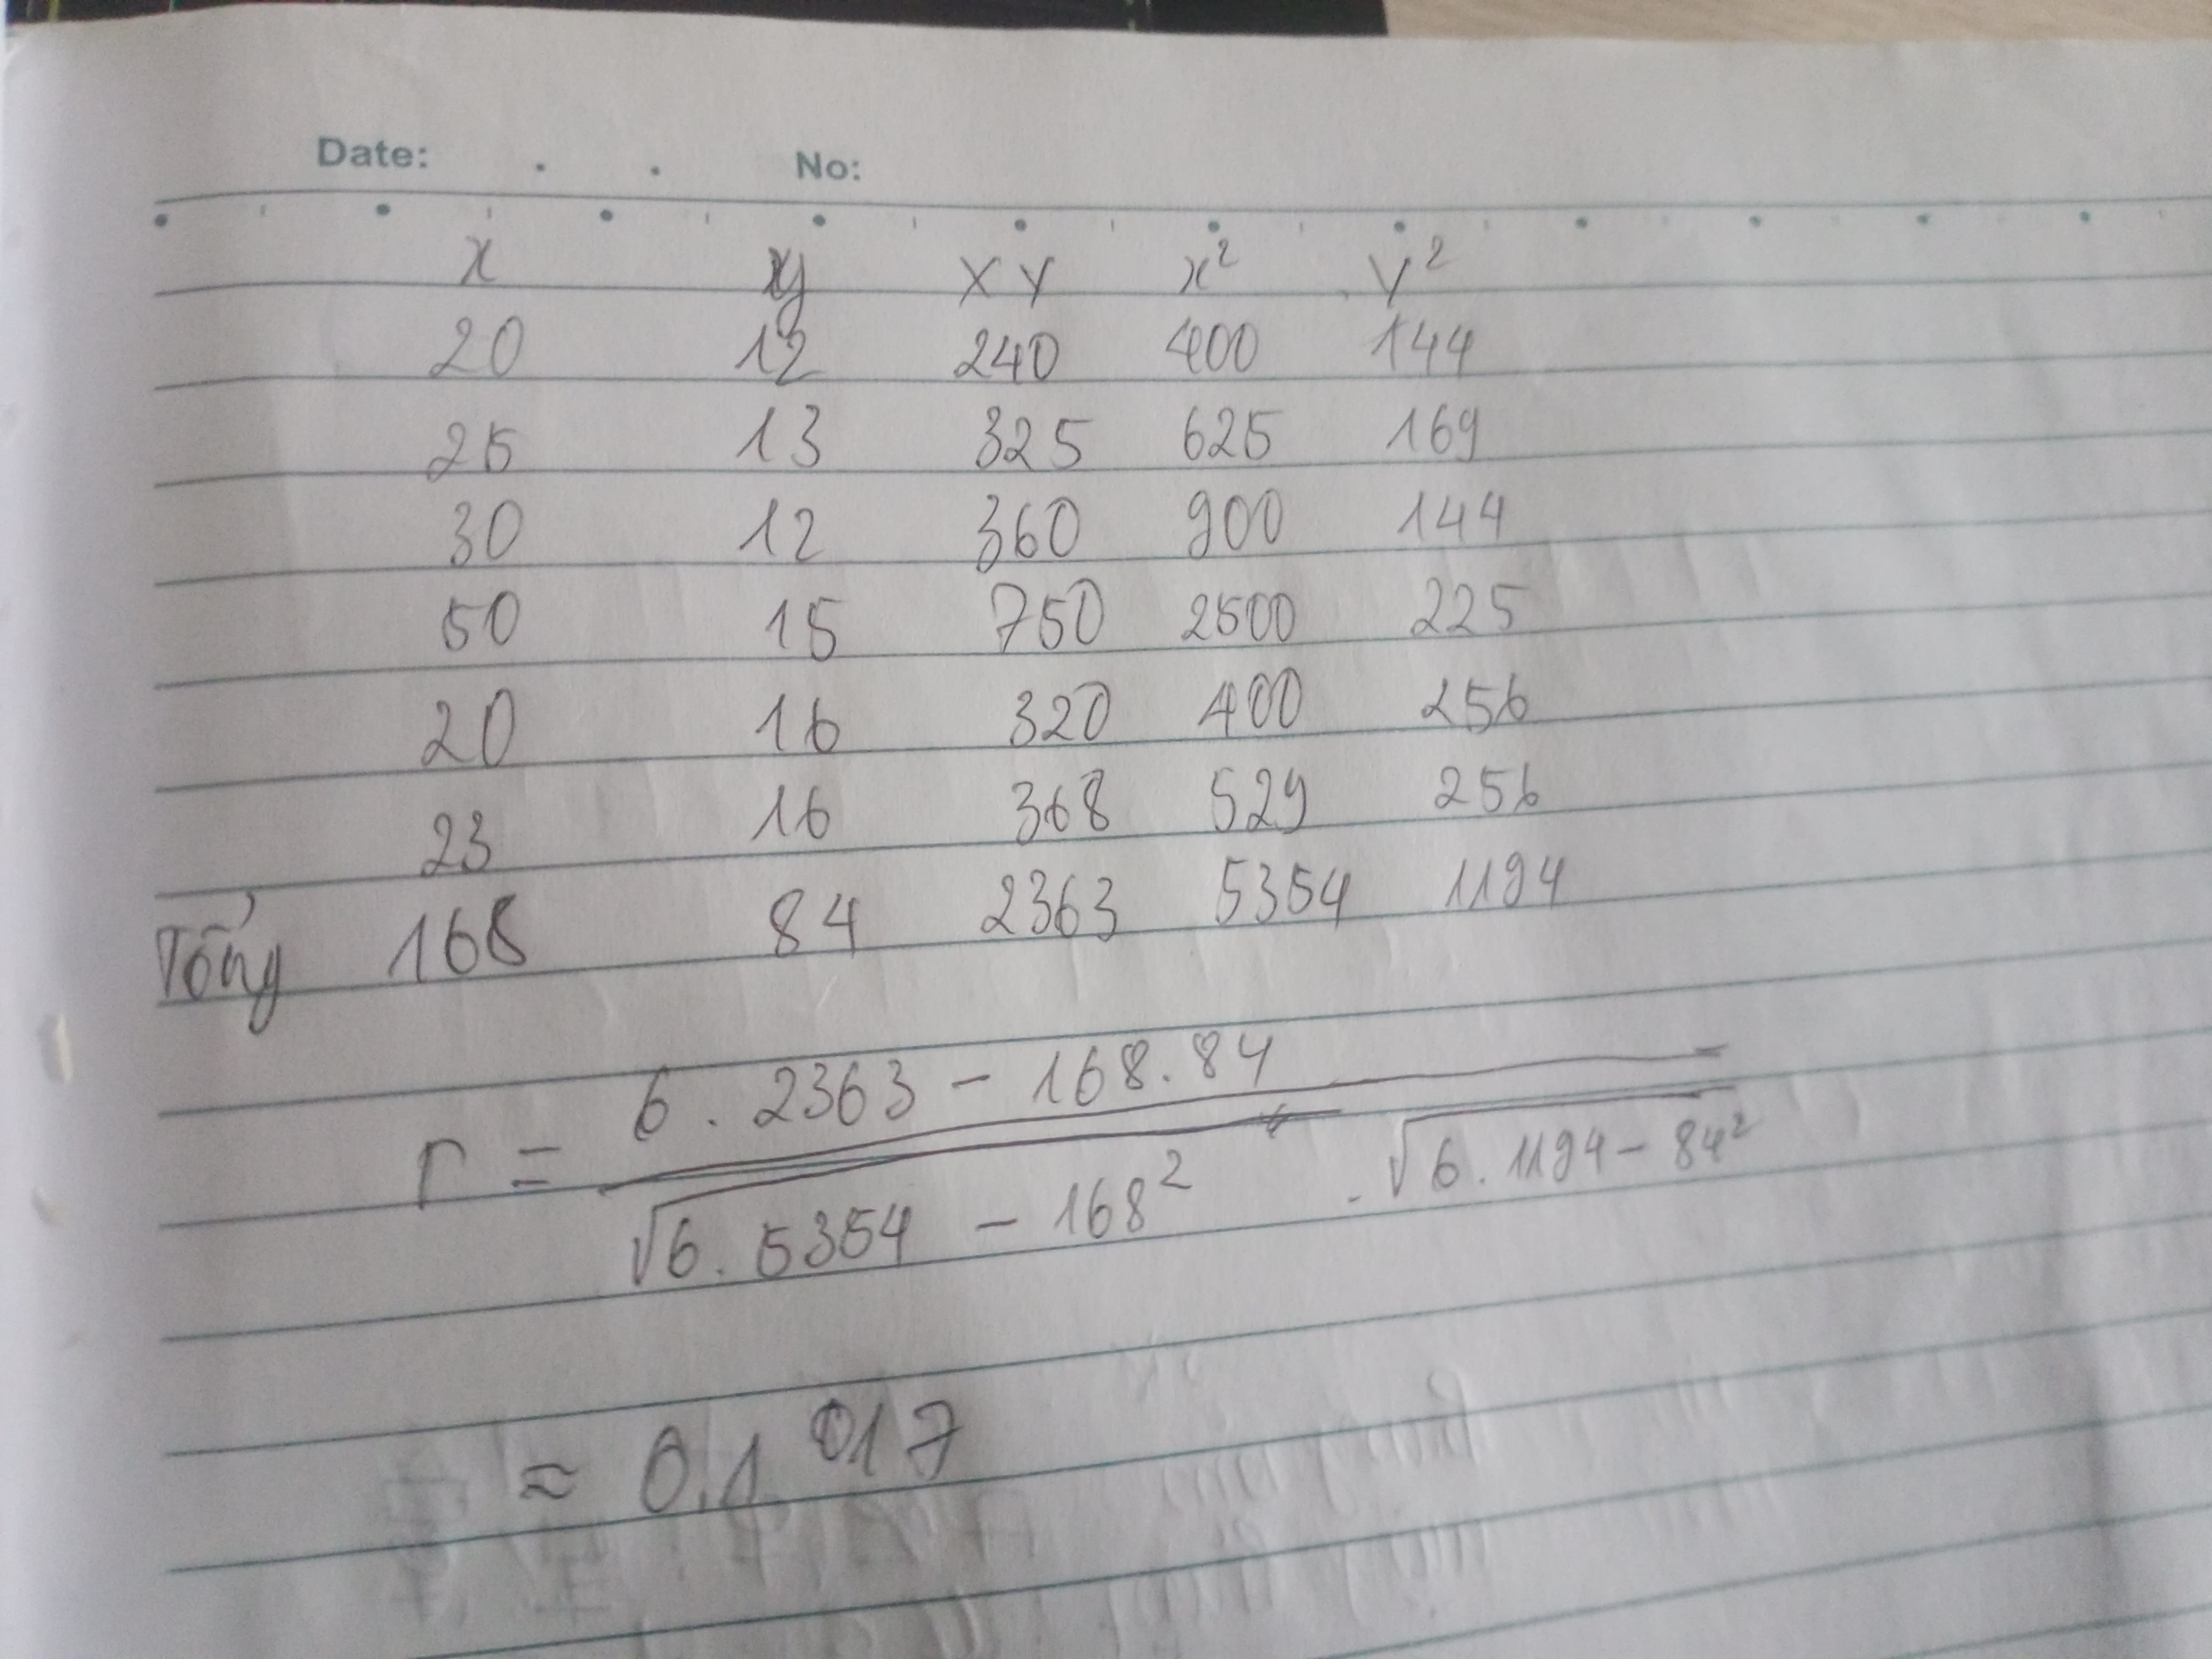 Date: . . No:
x y XY x² Y²
20 12 240 400 144
25 13 325 625 169
30 12 360 900 144
50 15 750 2500 225
20 16 320 400 256
23 16 368 529 256
Tổng 168 84 2363 5354 1194
r = (6 . 2363 - 168 . 84) / (√(6 . 5354 - 168²) . √(6 . 1194 - 84²))
≈ 0,1017